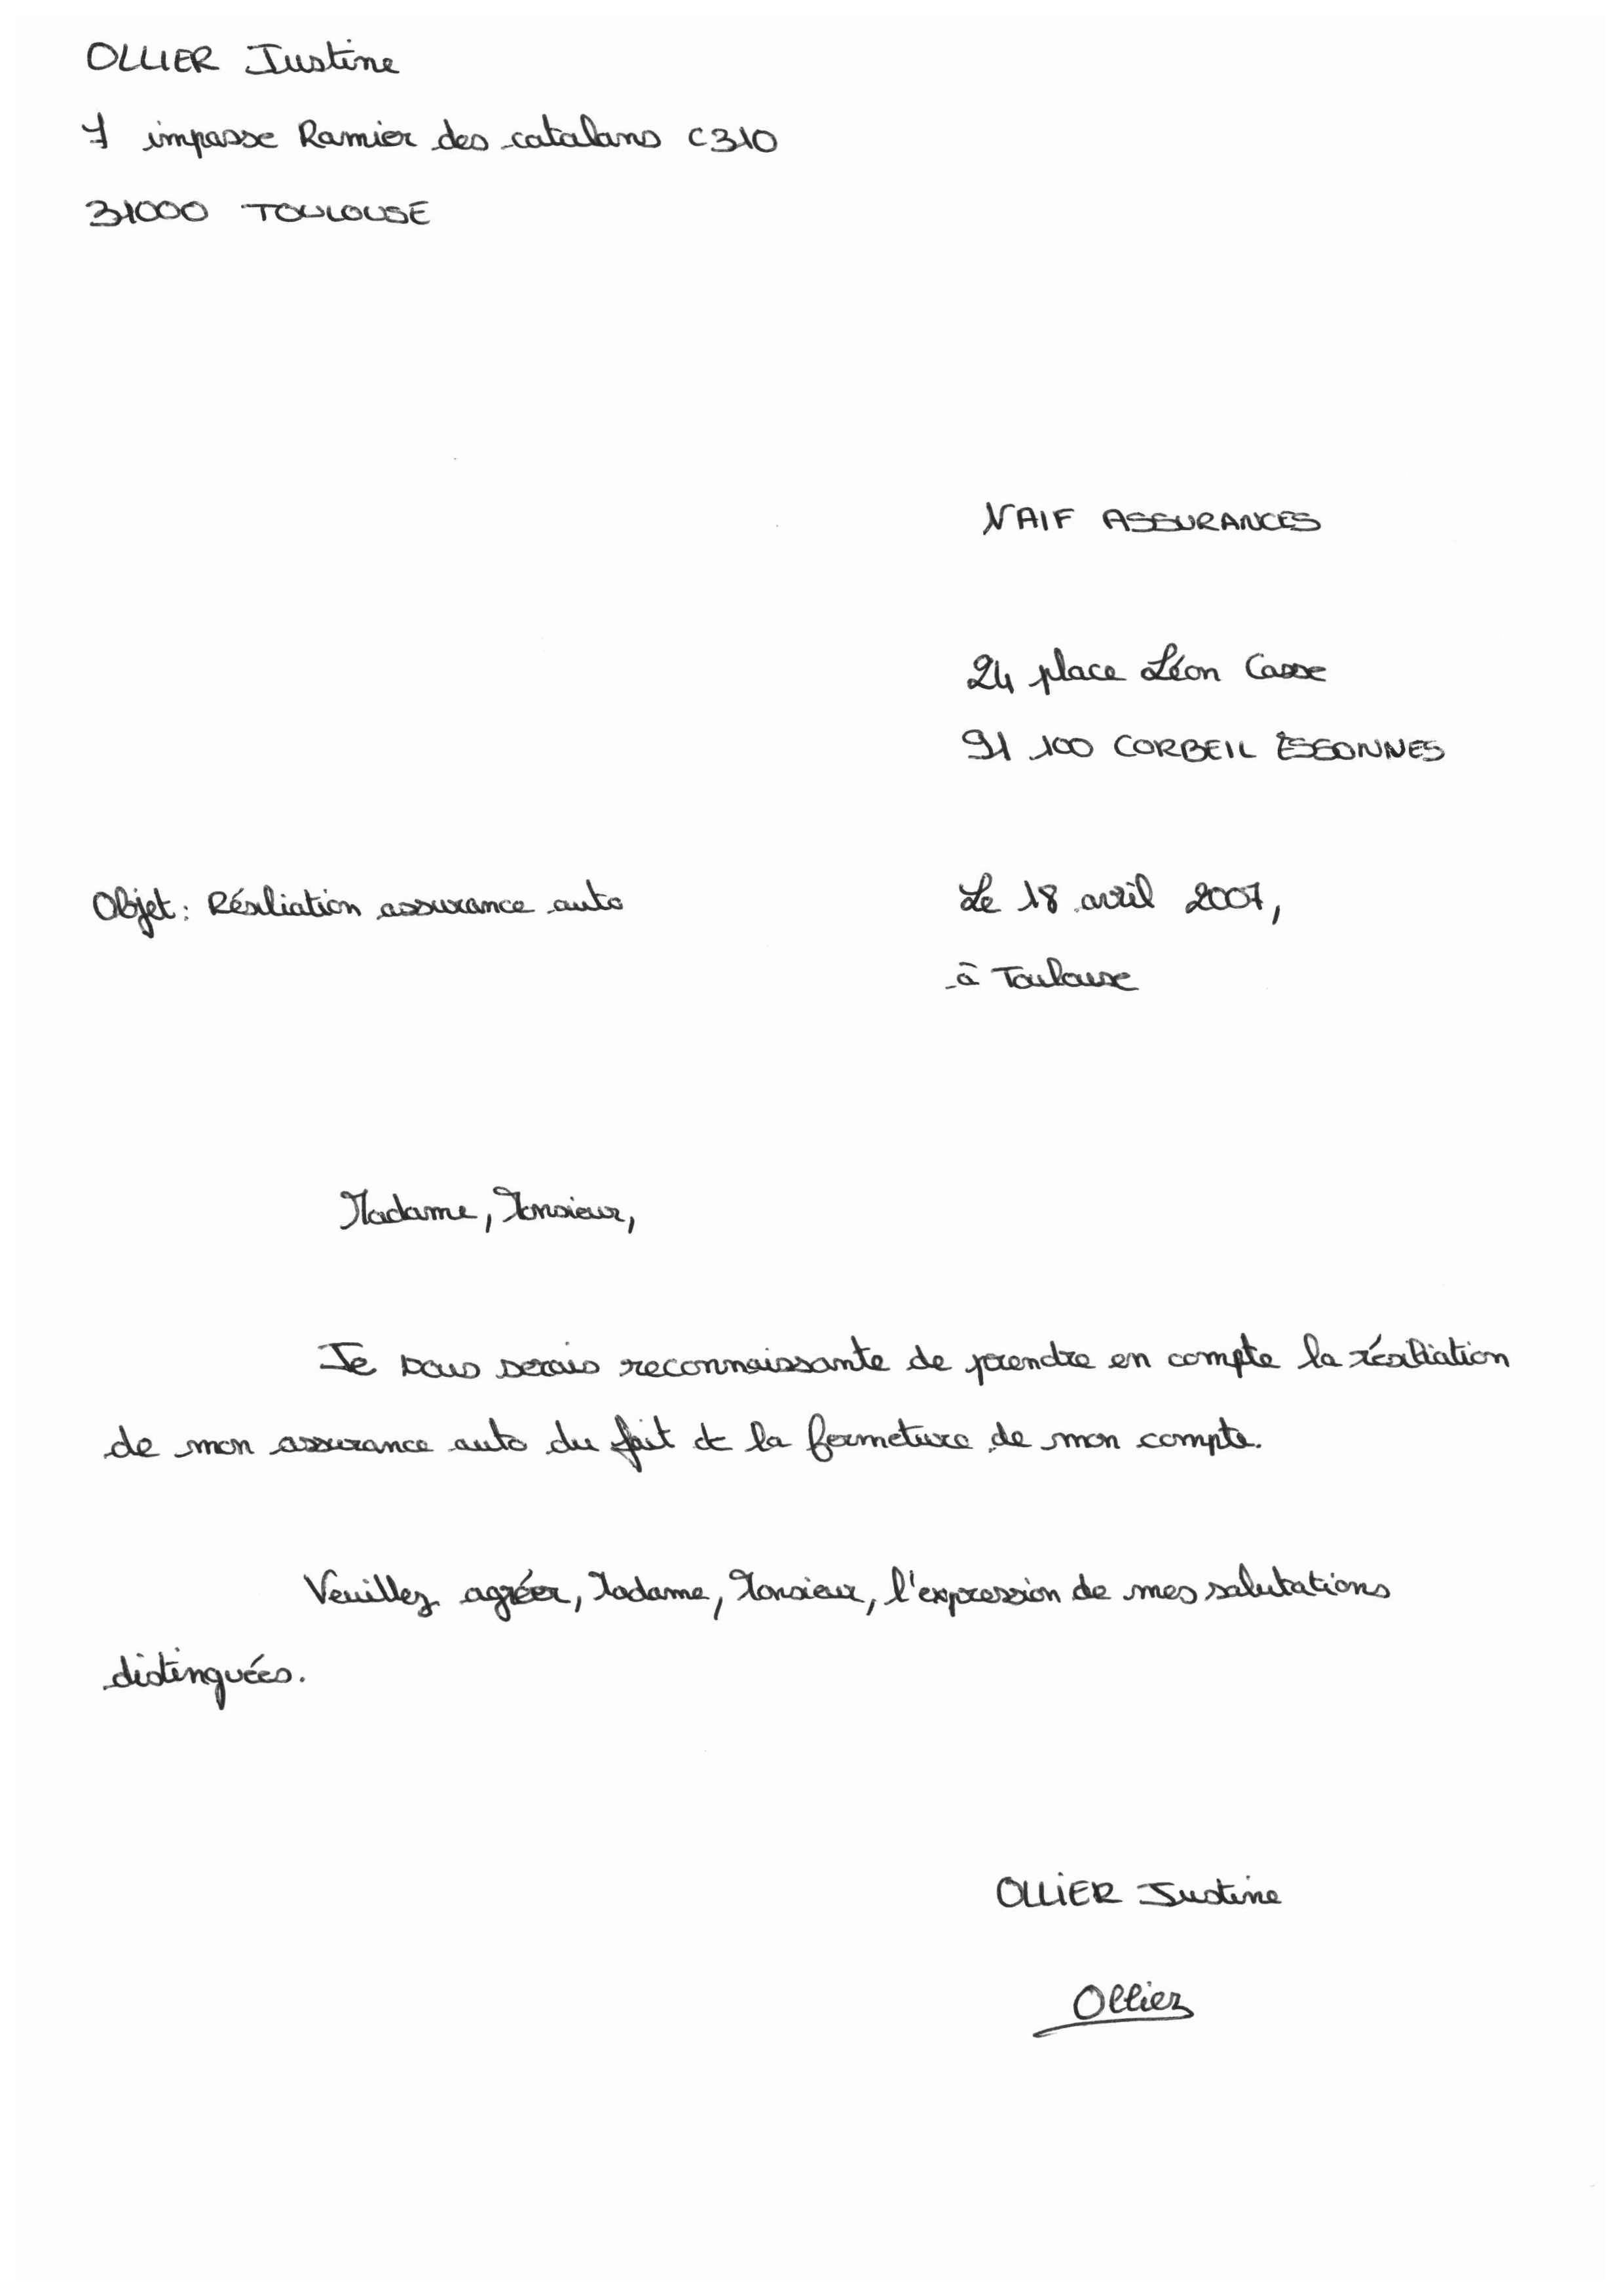 OLLIER Justine
7 impasse Ramier des catalans C310
31000 TOULOUSE
NAIF ASSURANCES
24 place Léon Casse
91 100 CORBEIL ESSONNES
Objet : Résiliation assurance auto
Le 18 avril 2007,
à Toulouse
Madame, Monsieur,
Je vous serais reconnaissante de prendre en compte la résiliation
de mon assurance auto du fait de la fermeture de mon compte.
Veuillez agréer, Madame, Monsieur, l'expression de mes salutations
distinguées.
OLLIER Justine
Ollier